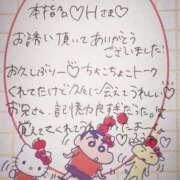 本指名♡Hさま♡
お誘い頂いてありがとう
ございました!
お久しぶりー♡ちょこちょこトーク
くれてたけど久々に会えてうれしい♡
お兄さん、記憶力良すぎだった。
覚えててくれてうれしい